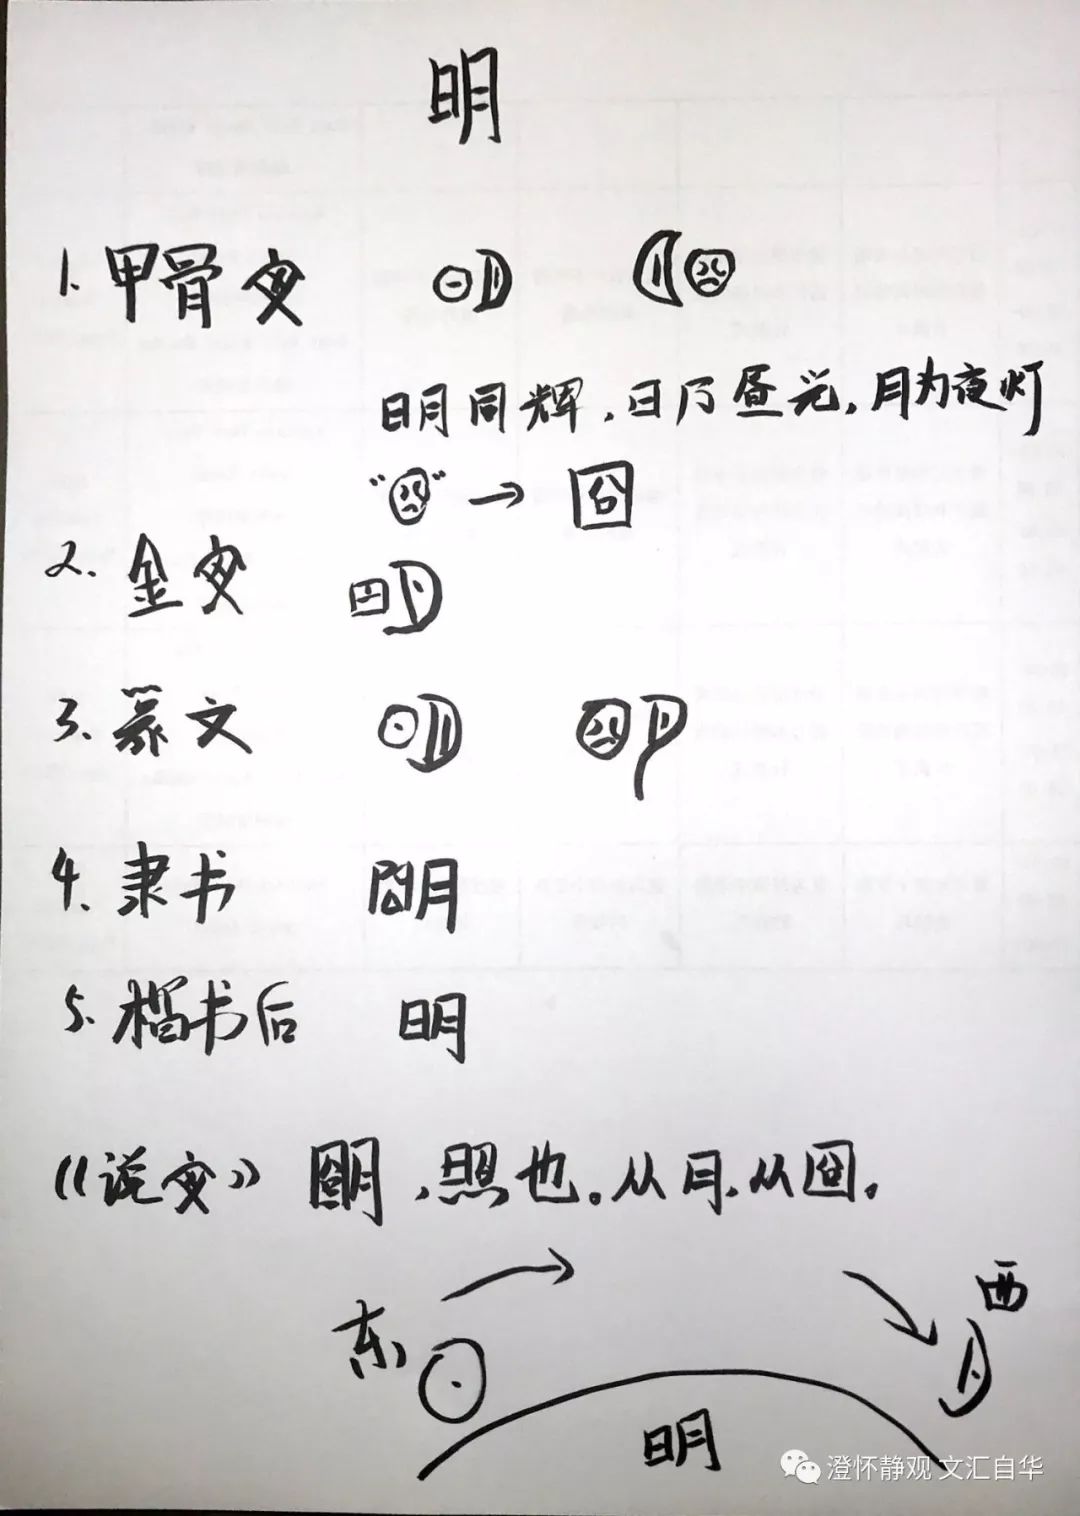 明
1. 甲骨文
日月同辉，日乃昼光，月为夜灯
“囧” → 囧
2. 金文
3. 篆文
4. 隶书 朙
5. 楷书后 明
《说文》朙，照也。从月，从囧。
东 西
明
澄怀静观 文汇自华